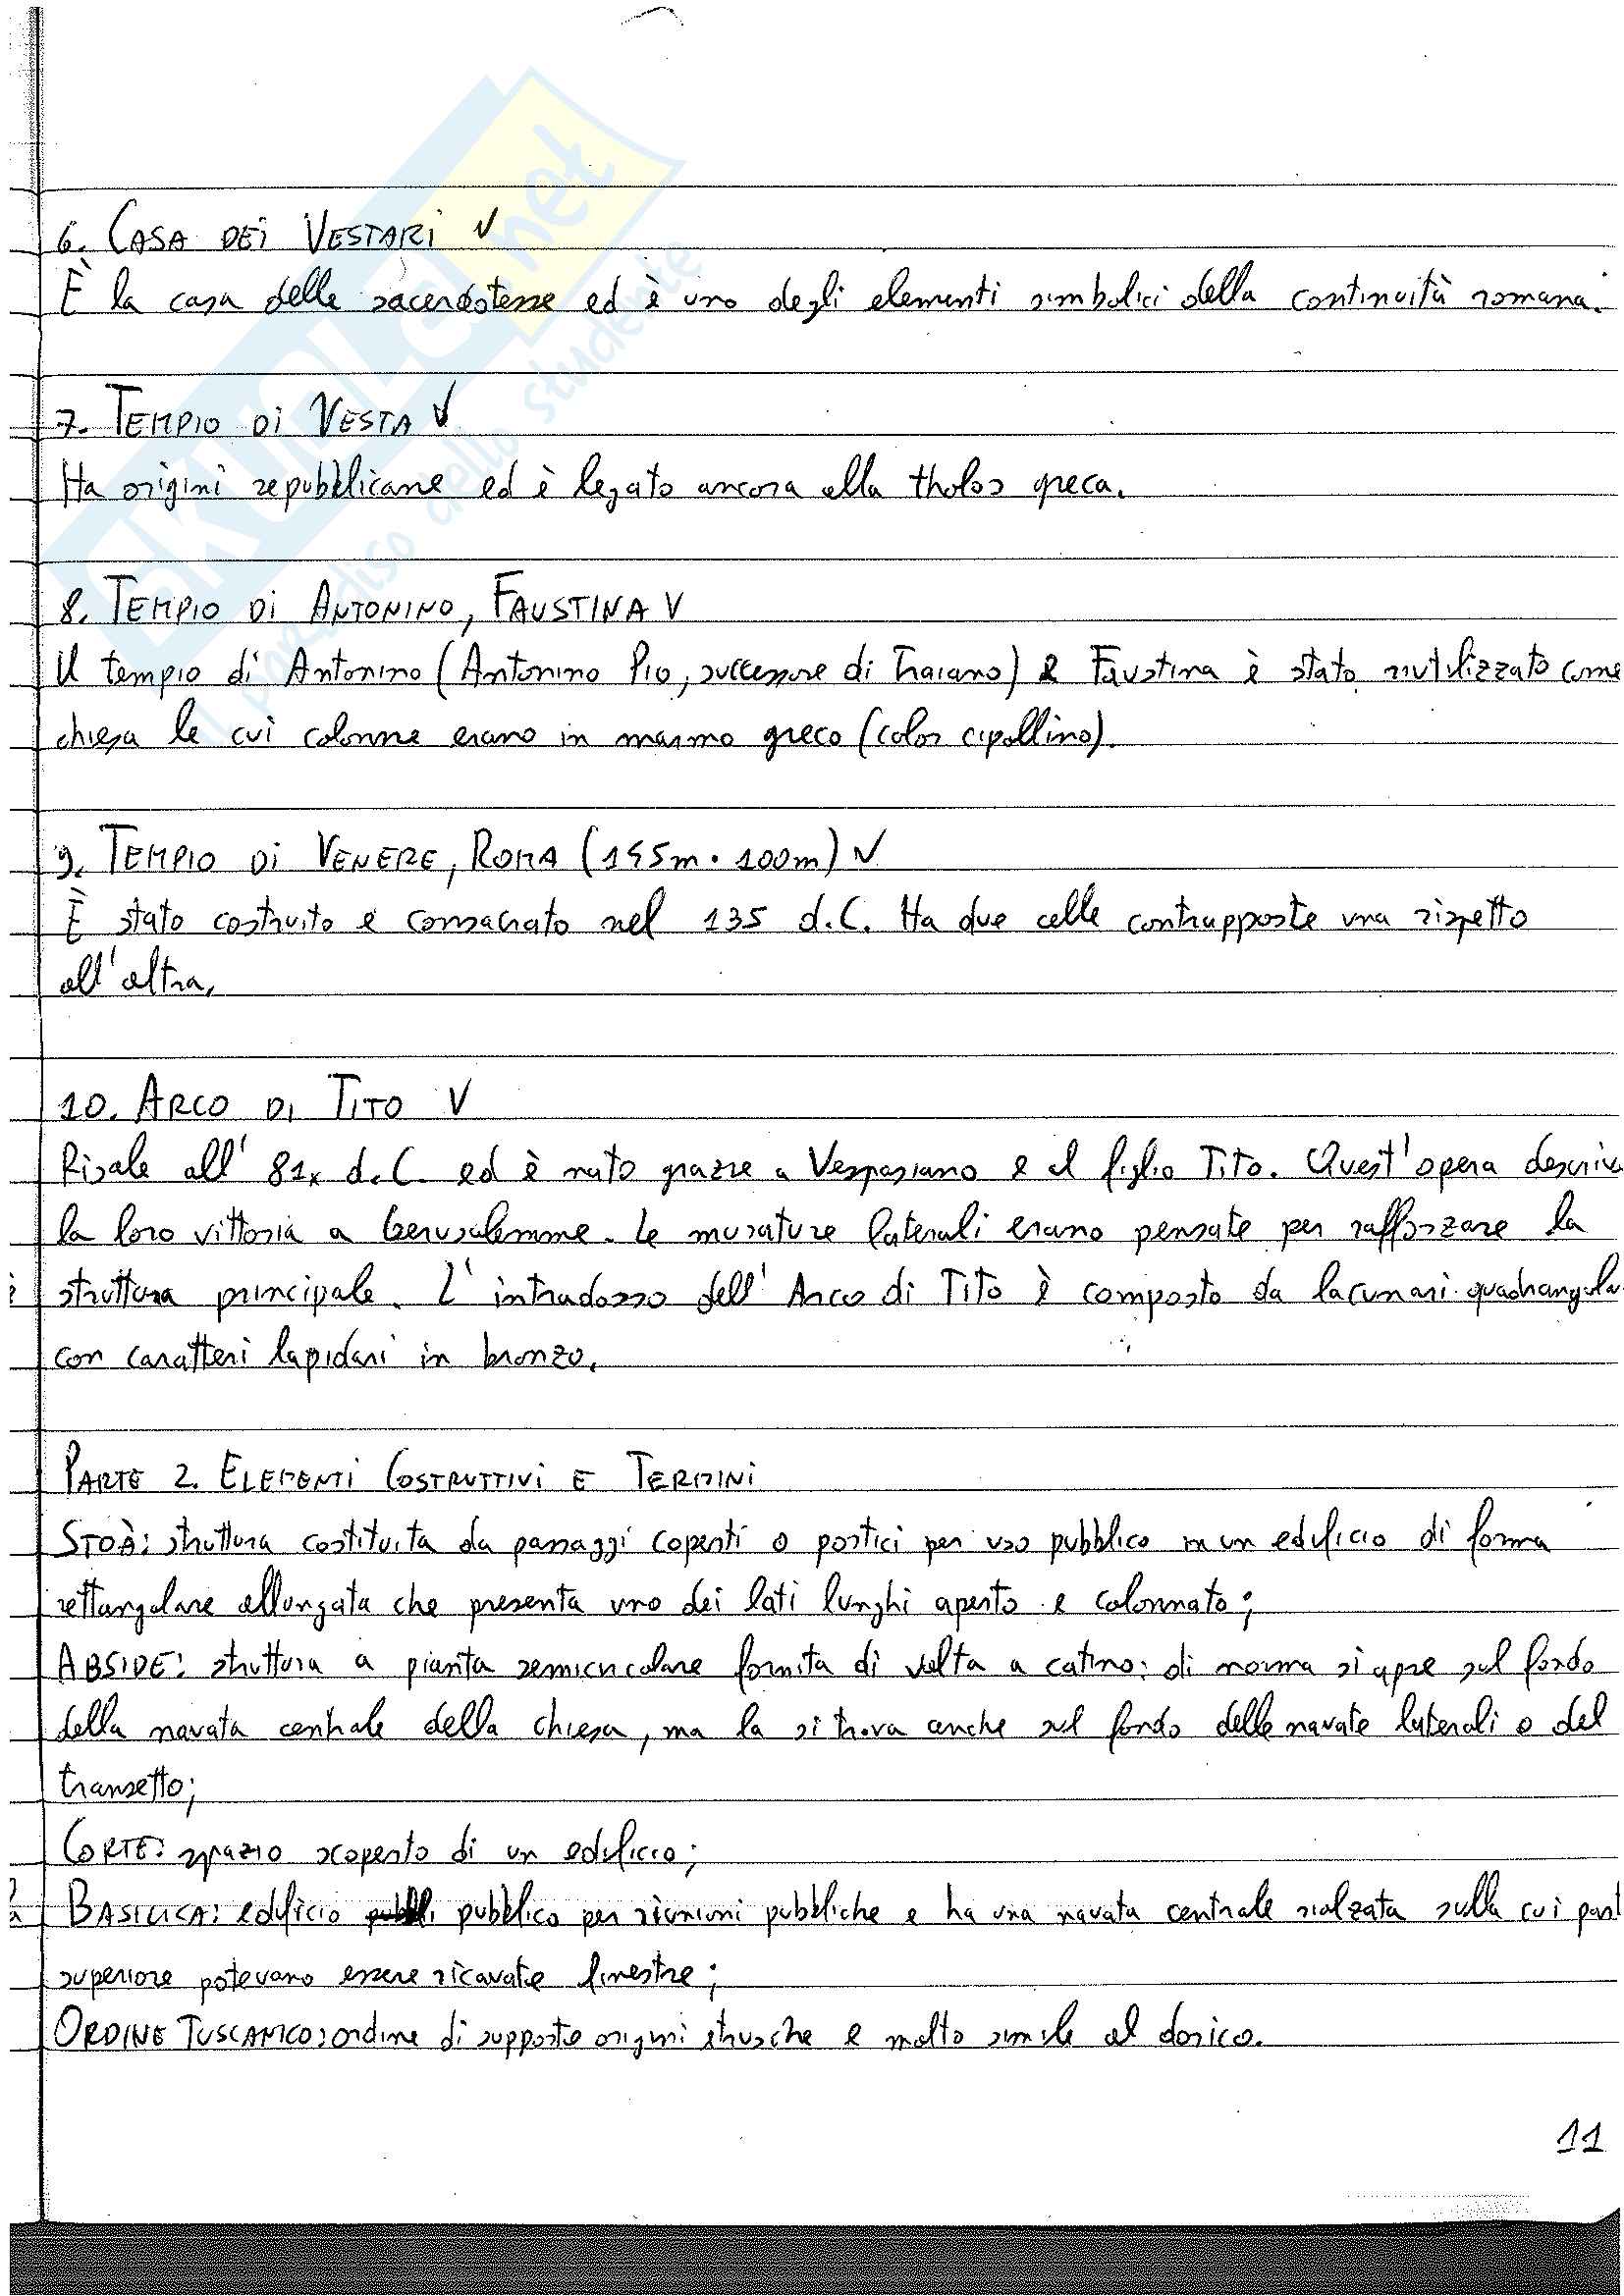 SKUOLA.net
il paradiso dello studente
6. CASA DEI VESTARI V
È la casa delle sacerdotesse ed è uno degli elementi simbolici della continuità romana.
7. TEMPIO DI VESTA V
Ha origini repubblicane ed è legato ancora alla tholos greca.
8. TEMPIO DI ANTONINO, FAUSTINA V
Il tempio di Antonino (Antonino Pio, successore di Traiano) e Faustina è stato riutilizzato come
chiesa le cui colonne erano in marmo greco (color cipollino).
9. TEMPIO DI VENERE, ROMA (145m · 100m) V
È stato costruito e consacrato nel 135 d.C. Ha due celle contrapposte una rispetto
all'altra.
10. ARCO DI TITO V
Risale all' 81 d.C. ed è nato grazie a Vespasiano e il figlio Tito. Quest'opera descrive
la loro vittoria a Gerusalemme. Le murature laterali erano pensate per rafforzare la
struttura principale. L'intradosso dell'Arco di Tito è composto da lacunari quadrangola
con caratteri lapidari in bronzo.
PARTE 2. ELEMENTI COSTRUTTIVI E TERMINI
STOÀ: struttura costituita da passaggi coperti o portici per uso pubblico in un edificio di forma
rettangolare allungata che presenta uno dei lati lunghi aperto e colonnato;
ABSIDE: struttura a pianta semicircolare fornita di volta a catino: di norma si apre sul fondo
della navata centrale della chiesa, ma la si trova anche sul fondo delle navate laterali o del
transetto;
CORTE: spazio scoperto di un edificio;
BASILICA: edificio pubblico per riunioni pubbliche e ha una navata centrale rialzata sulla cui part
superiore potevano essere ricavate finestre;
ORDINE TUSCANICO: ordine di supposte origini etrusche e molto simile al dorico.
11